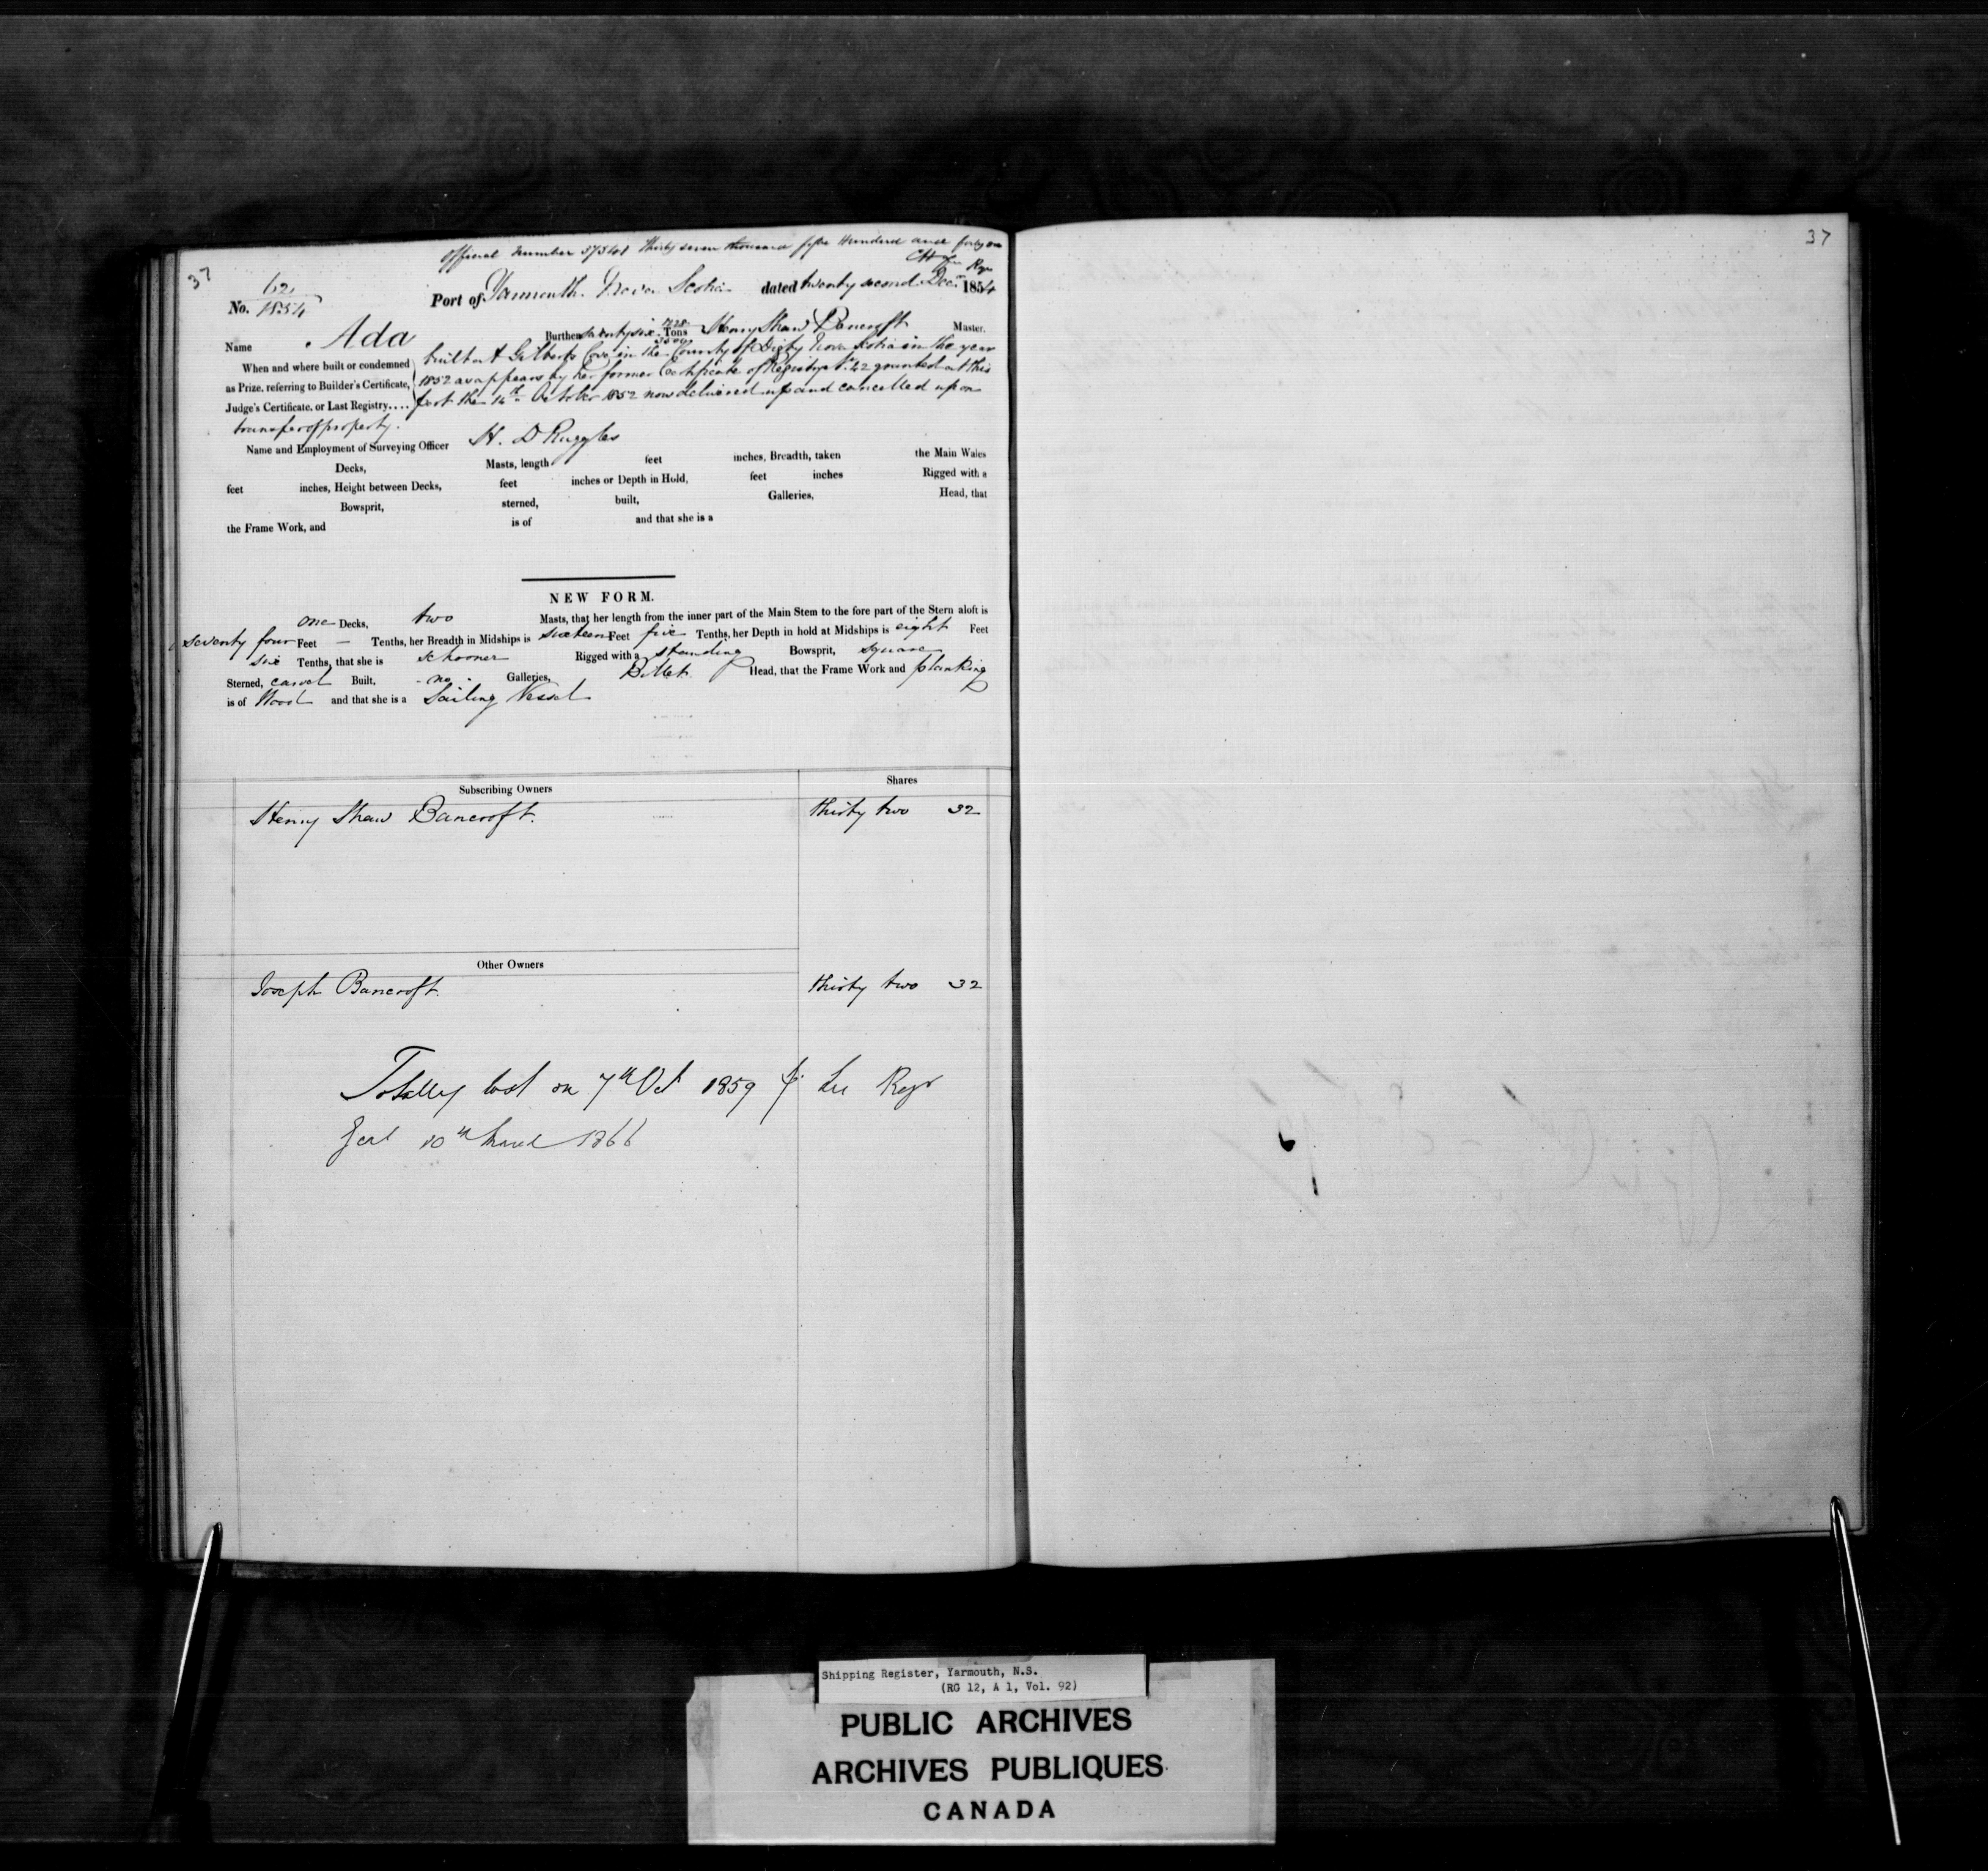 37
Official Number 37541 Thirty seven thousand five Hundred and forty one
Regr
No. 62/1854 Port of Yarmouth. Nova Scotia dated twenty second Decr. 1854
Name Ada Burthen seventy six Tons Henry Shaw Bancroft Master.
When and where built or condemned as Prize, referring to Builder's Certificate, Judge's Certificate, or Last Registry....
built at Gilberts Cove in the County of Digby Nova Scotia in the year
1852 as appears by her former Certificate of Registry No. 42 granted at this
port the 14th October 1852 now delivered up and cancelled upon
transfer of property.
Name and Employment of Surveying Officer H. D Ruggles
Decks, Masts, length feet inches, Breadth, taken the Main Wales
feet inches, Height between Decks, feet inches or Depth in Hold, feet inches Rigged with a
Bowsprit, sterned, built, Galleries, Head, that
the Frame Work, and is of and that she is a
NEW FORM.
one Decks, two Masts, that her length from the inner part of the Main Stem to the fore part of the Stern aloft is
seventy four Feet — Tenths, her Breadth in Midships is sixteen Feet five Tenths, her Depth in hold at Midships is eight Feet
six Tenths, that she is schooner Rigged with a standing Bowsprit, square
Sterned, carvel Built, - no - Galleries, Billet Head, that the Frame Work and planking
is of Wood and that she is a Sailing Vessel
Subscribing Owners Shares
Henry Shaw Bancroft. thirty two 32
Other Owners
Joseph Bancroft. thirty two 32
Totally lost on 7th Oct 1859 Regr
10th March 1866
37
Shipping Register, Yarmouth, N.S.
(RG 12, A 1, Vol. 92)
PUBLIC ARCHIVES
ARCHIVES PUBLIQUES
CANADA